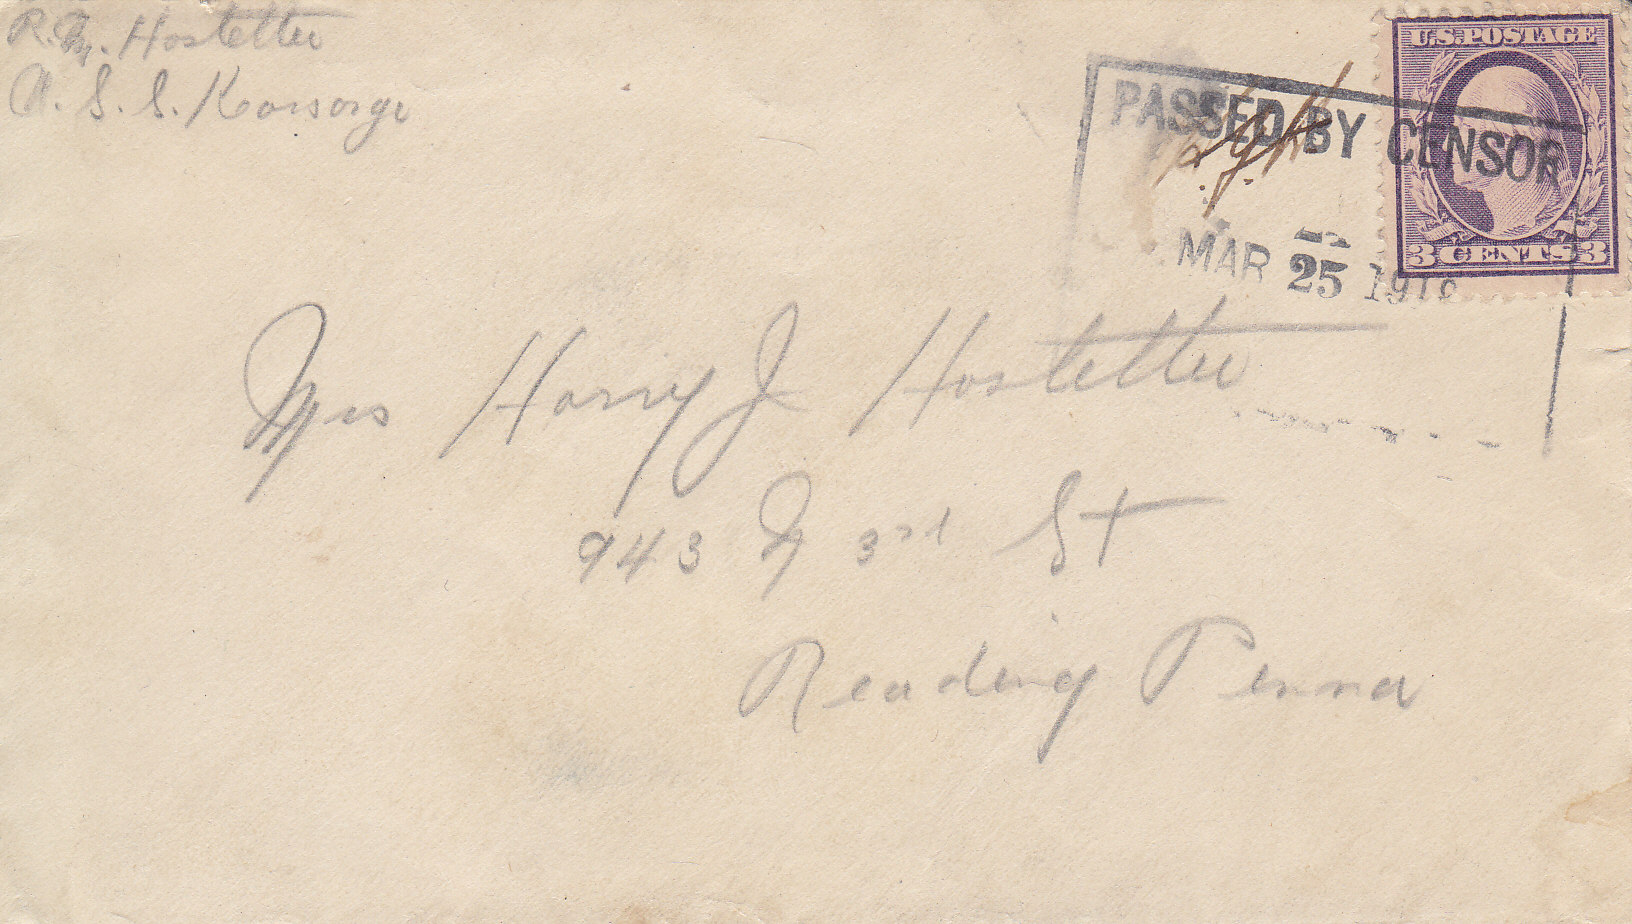 R. M. Hostetter
U. S. S. Karsarge
U.S. POSTAGE
PASSED BY CENSOR
MAR 25 191
3 CENTS 3
Mrs Harry J Hostetter
943 N 3rd St
Reading Penna